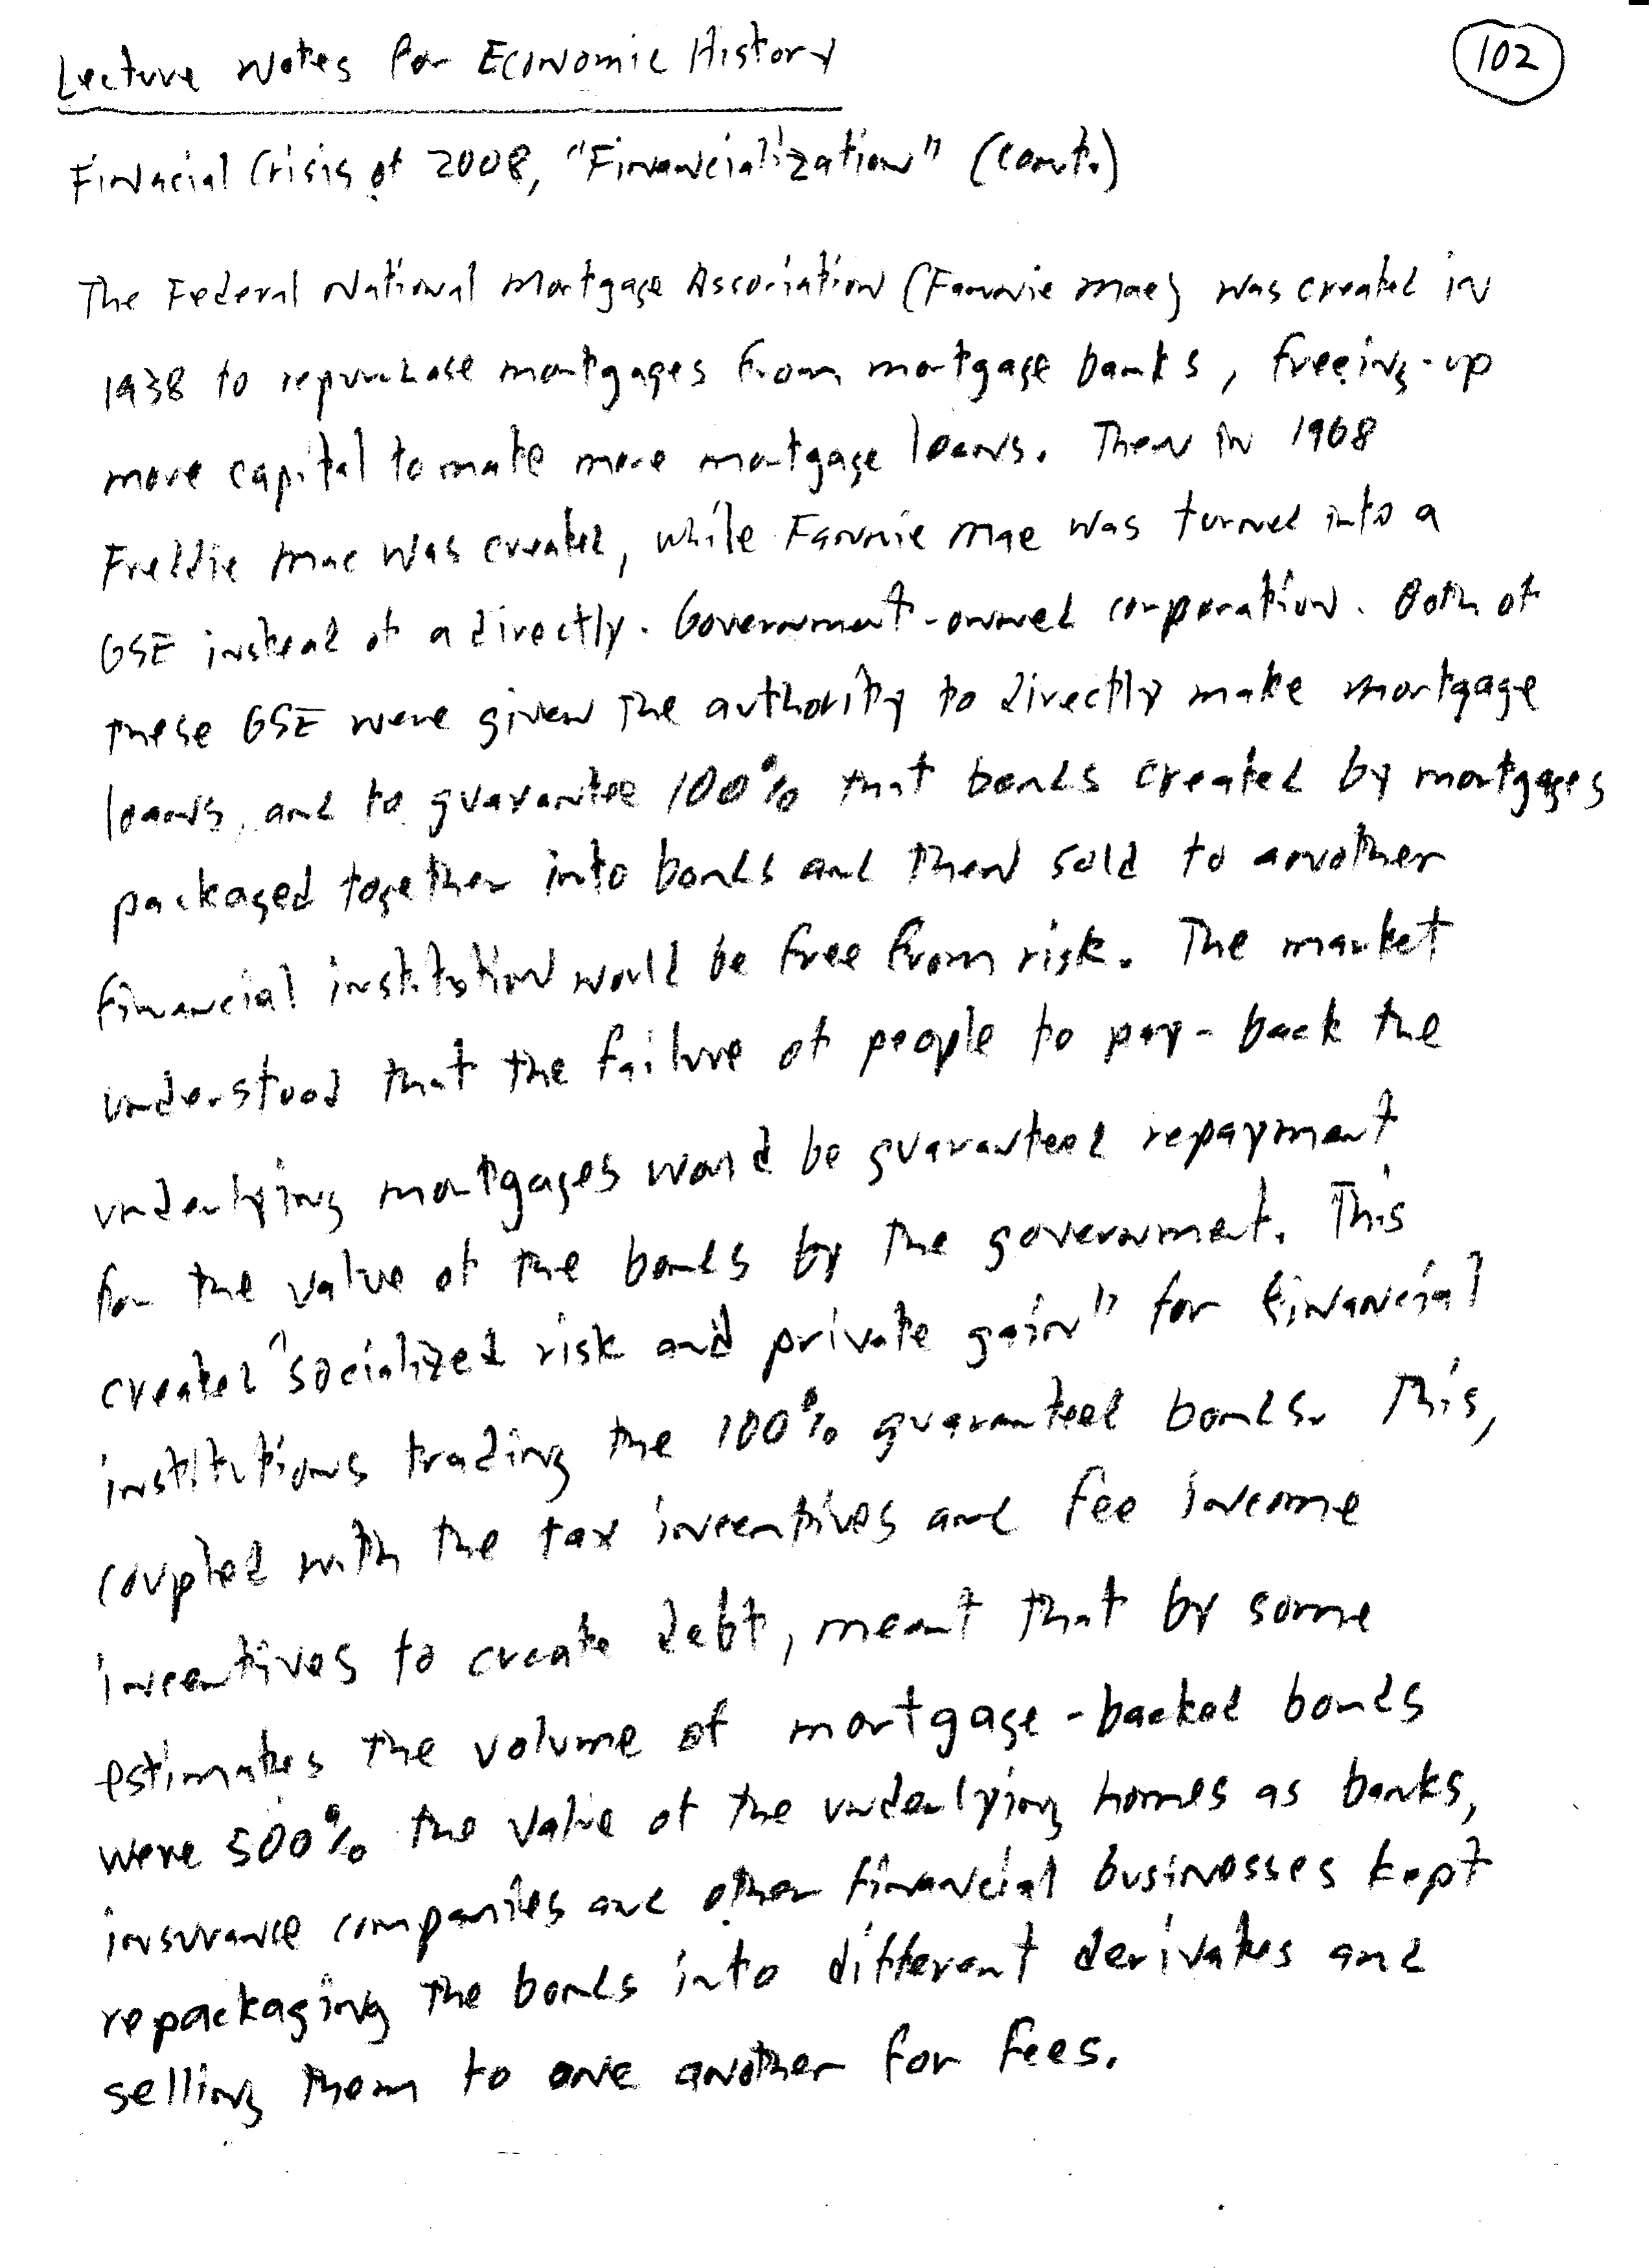 Lecture Notes for Economic History
102
Finacial Crisis of 2008, "Financialization" (cont.)
The Federal National Mortgage Association (Fannie Mae) was created in
1938 to repurchase mortgages from mortgage banks, freeing-up
more capital to make more mortgage loans. Then in 1968
Freddie Mac was created, while Fannie Mae was turned into a
GSE instead of a directly-Government-owned corporation. Both of
these GSE were given the authority to directly make mortgage
loans, and to guarantee 100% that bonds created by mortgages
packaged together into bonds and then sold to another
financial institution would be free from risk. The market
understood that the failure of people to pay-back the
underlying mortgages would be guaranteed repayment
for the value of the bonds by the government. This
created "socialized risk and private gain" for financial
institutions trading the 100% guaranteed bonds. This,
coupled with the tax incentives and fee income
incentives to create debt, meant that by some
estimates the volume of mortgage-backed bonds
were 500% the value of the underlying homes as banks,
insurance companies and other financial businesses kept
repackaging the bonds into different derivates and
selling them to one another for fees.